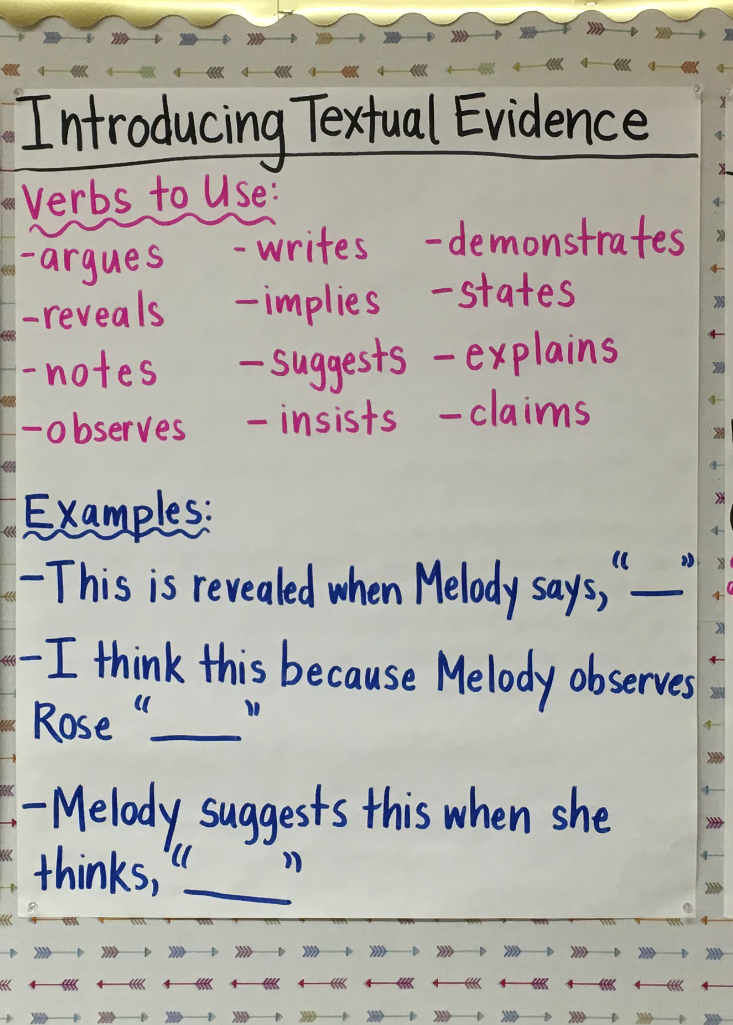 Introducing Textual Evidence
Verbs to Use:
-argues -writes -demonstrates
-reveals -implies -states
-notes -suggests -explains
-observes -insists -claims
Examples:
-This is revealed when Melody says, "__"
-I think this because Melody observes
Rose "____"
-Melody suggests this when she
thinks, "____"